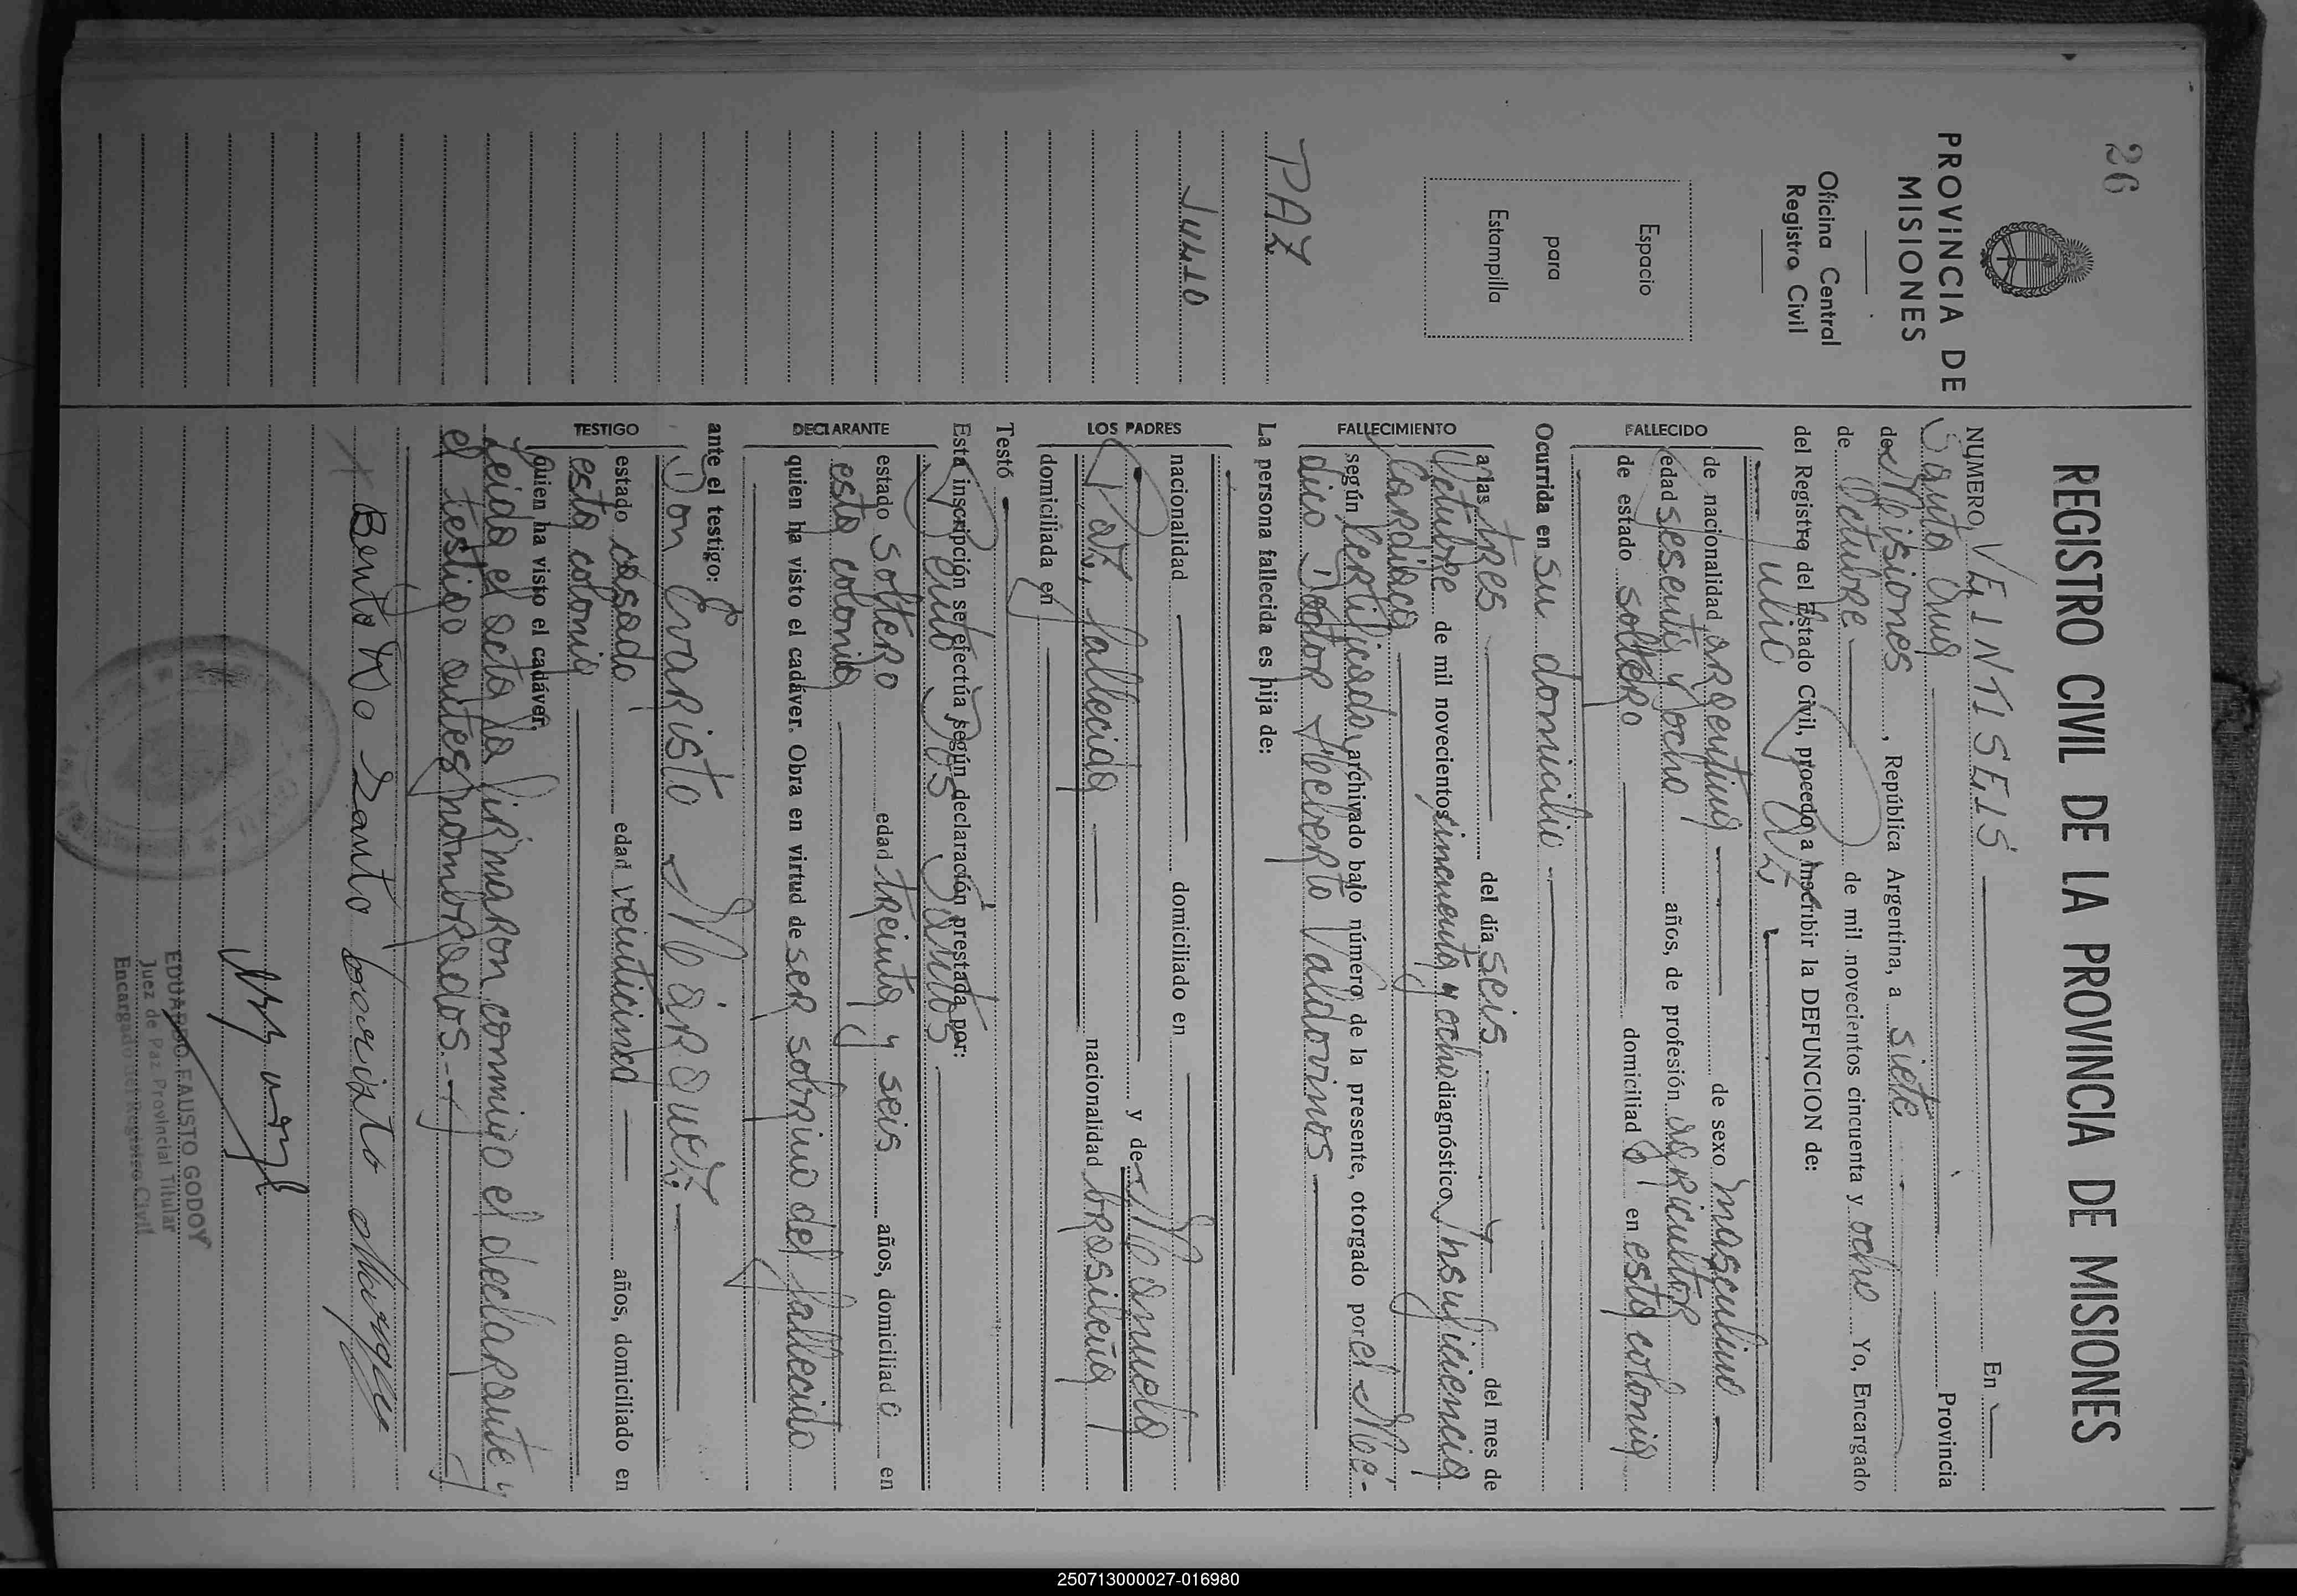 26
PROVINCIA DE
MISIONES
Oficina Central
Registro Civil
Espacio
para
Estampilla
PAZ
JULIO
REGISTRO CIVIL DE LA PROVINCIA DE MISIONES
NUMERO VEINTISEIS En
Santa Ana Provincia
de Misiones, República Argentina, a siete
de Octubre de mil novecientos cincuenta y ocho Yo, Encargado
del Registro del Estado Civil, procedo a inscribir la DEFUNCION de:
Julio Paz,
FALLECIDO
de nacionalidad argentina de sexo masculino
edad sesenta y ocho años, de profesión agricultor
de estado soltero domiciliado en esta colonia
Ocurrida en su domicilio
FALLECIMIENTO
a las tres del día seis del mes de
Octubre de mil novecientos cincuenta y ocho diagnóstico Insuficiencia
Cardiaca
según Certificado archivado bajo número de la presente, otorgado por el Mé-
dico Doctor Heriberto Valdovinos
La persona fallecida es hija de:
LOS PADRES
nacionalidad domiciliado en
y de Manuela
Paz, fallecida nacionalidad brasileña
domiciliada en
Testó
Esta inscripción se efectúa según declaración prestada por:
Bento Dos Santos
DECLARANTE
estado soltero edad treinta y seis años, domiciliado en
esta colonia
quien ha visto el cadáver. Obra en virtud de ser sobrino del fallecido
ante el testigo:
Don Evaristo Márquez.
TESTIGO
estado casado edad veinticinco años, domiciliado en
esta colonia
quien ha visto el cadáver.
Leida el acta la firmaron conmigo el declarante y
el testigo antes nombrados.
Bento Do Santo Evaristo Marquez
EDUARDO FAUSTO GODOY
Juez de Paz Provincial Titular
Encargado del Registro Civil
250713000027-016980